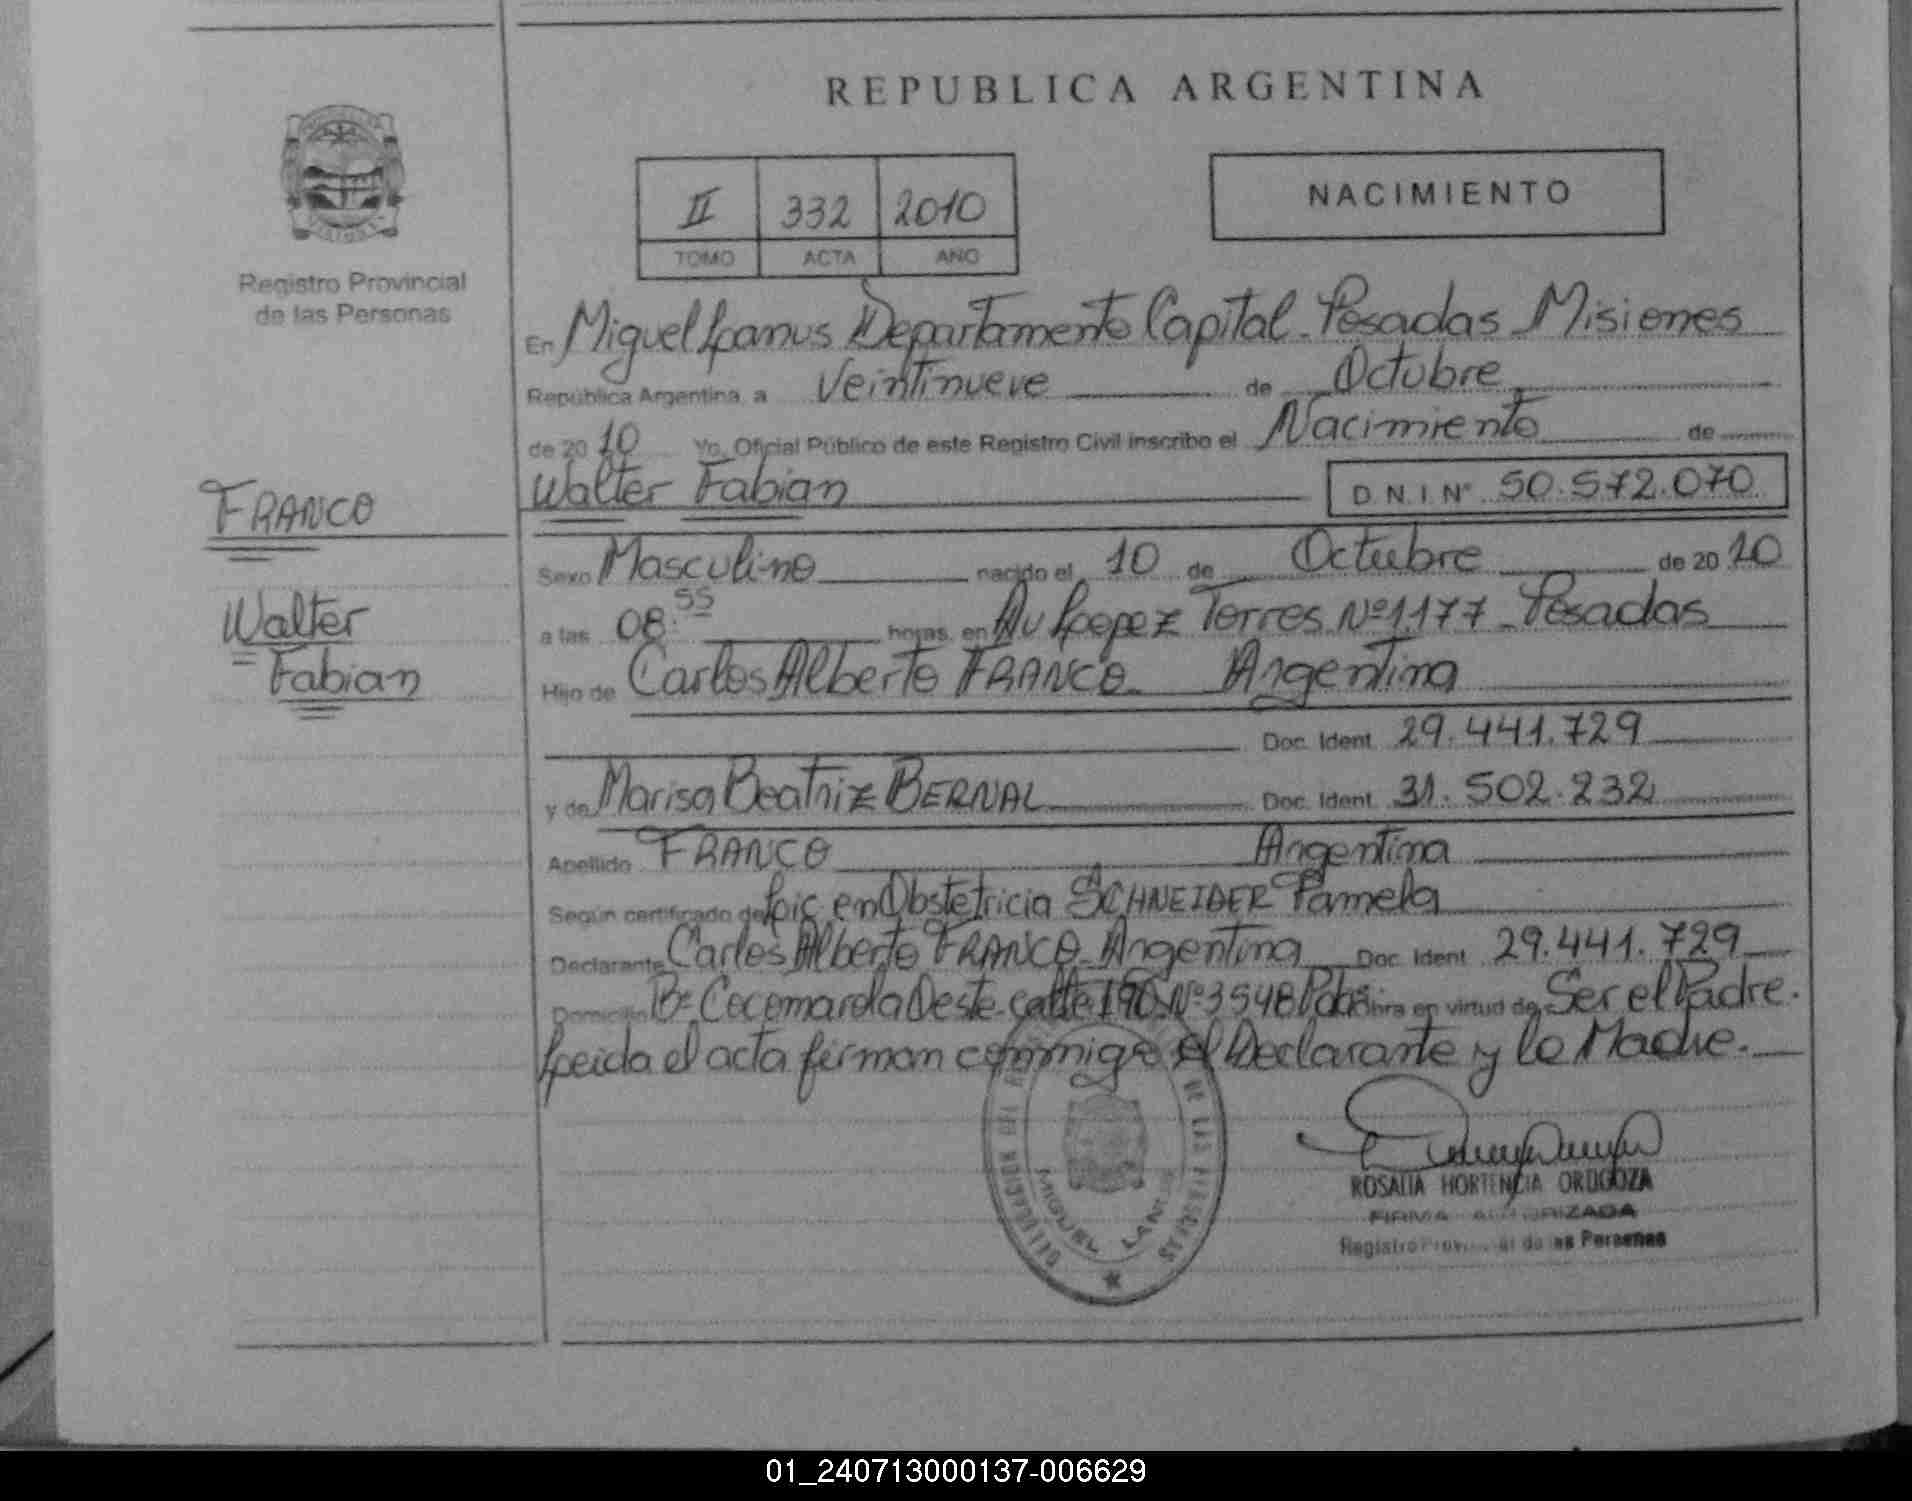 REPUBLICA ARGENTINA
II 332 2010
TOMO ACTA AÑO
NACIMIENTO
Registro Provincial
de las Personas
En Miguel Lanus Departamento Capital - Posadas Misiones
República Argentina, a Veintinueve de Octubre
de 2010 Yo, Oficial Público de este Registro Civil inscribo el Nacimiento de
FRANCO
Walter
Fabian
Walter Fabian D N I Nº 50.572.070
Sexo Masculino nacido el 10 de Octubre de 2010
a las 08:55 horas, en Av Lopez Torres Nº 1177 - Posadas
Hijo de Carlos Alberto FRANCO - Argentina
Doc. Ident. 29.441.729
y de Marisa Beatriz BERNAL Doc. Ident. 31.502.232
Apellido FRANCO Argentina
Según certificado de Lic. en Obstetricia SCHNEIDER Pamela
Declarante Carlos Alberto FRANCO - Argentina Doc. Ident. 29.441.729
Domicilio Bº Cocomarola Oeste - calle 190 Nº 3548 Pdas obra en virtud de Ser el Padre.
Leida el acta firman conmigo el Declarante y la Madre.
DELEGACION DEL DE LAS PERSONAS
MIGUEL LANUS
ROSALIA HORTENCIA ORDGOZA
FIRMA AUTORIZADA
Registro Provincial de las Personas
01_240713000137-006629